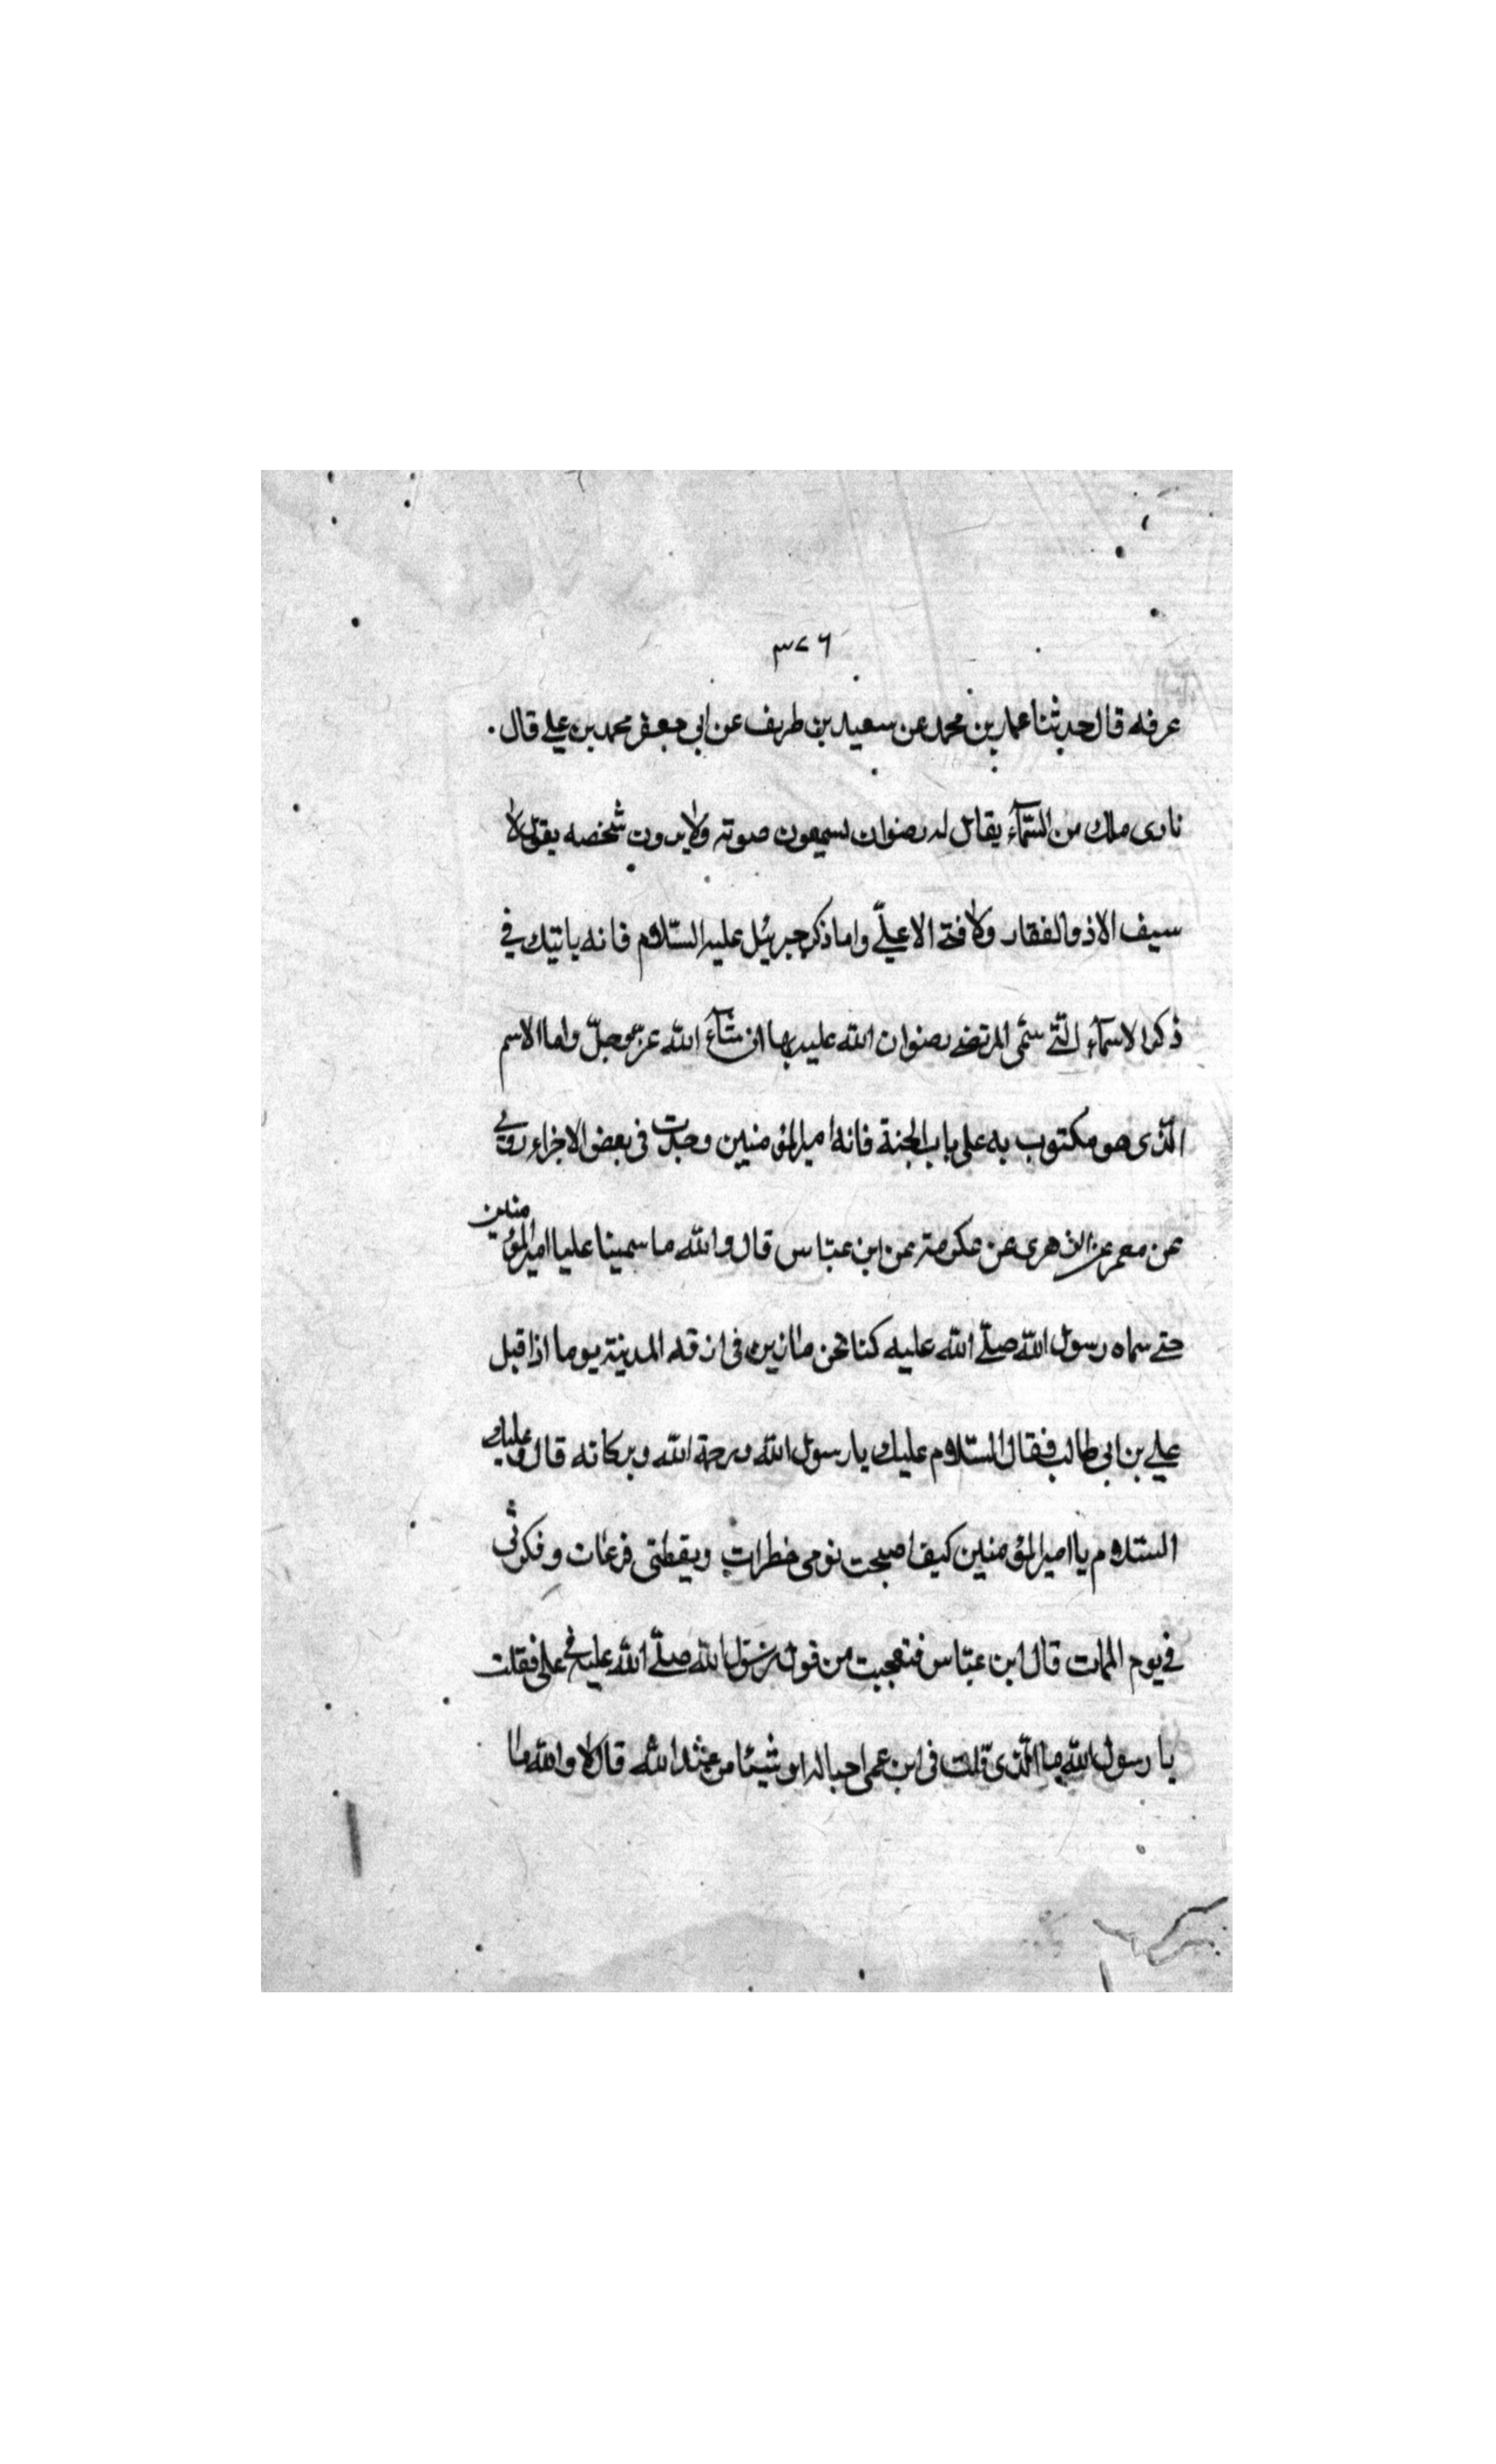 ٣٧٦
عرفه قال حدثنا عمار بن محمد عن سعيد بن طريف عن ابي جعفر محمد بن علي قال
نادى ملك من السّمآء يقال له رضوان يسمعون صوته ولا يرون شخصه يقول لا
سيف الا ذو الفقار ولا فتى الا عليّ واما ذكر جبرئيل عليه السّلام فانه ياتيك في
ذكر الاسمآء الّتي سمّي المرتضى رضوان الله عليه بها ان شآء الله عزّ وجلّ واما الاسم
الّذى هو مكتوب به على باب الجنة فانه امير المؤمنين وجدت في بعض الاجزاء روي
عن معمر عن الزهرى عن عكرمة عن ابن عبّاس قال والله ما سمينا عليا امير المؤمنين
حتى سماه رسول الله صلّى الله عليه كنا نحن مازين في ازقة المدينة يوما اذا قبل
علي بن ابي طالب فقال السّلام عليك يا رسول الله ورحمة الله وبركاته قال وعليك
السّلام يا امير المؤمنين كيف اصبحت نومى خطرات ويقظتى فزعات وفكرتي
في يوم الممات قال ابن عبّاس فتعجبت من قول رسول الله صلّى الله عليه في علي فقلت
يا رسول الله ما الّذى قلت في ابن عمى احبا له ام شيئا من عند الله قال لا والله ما